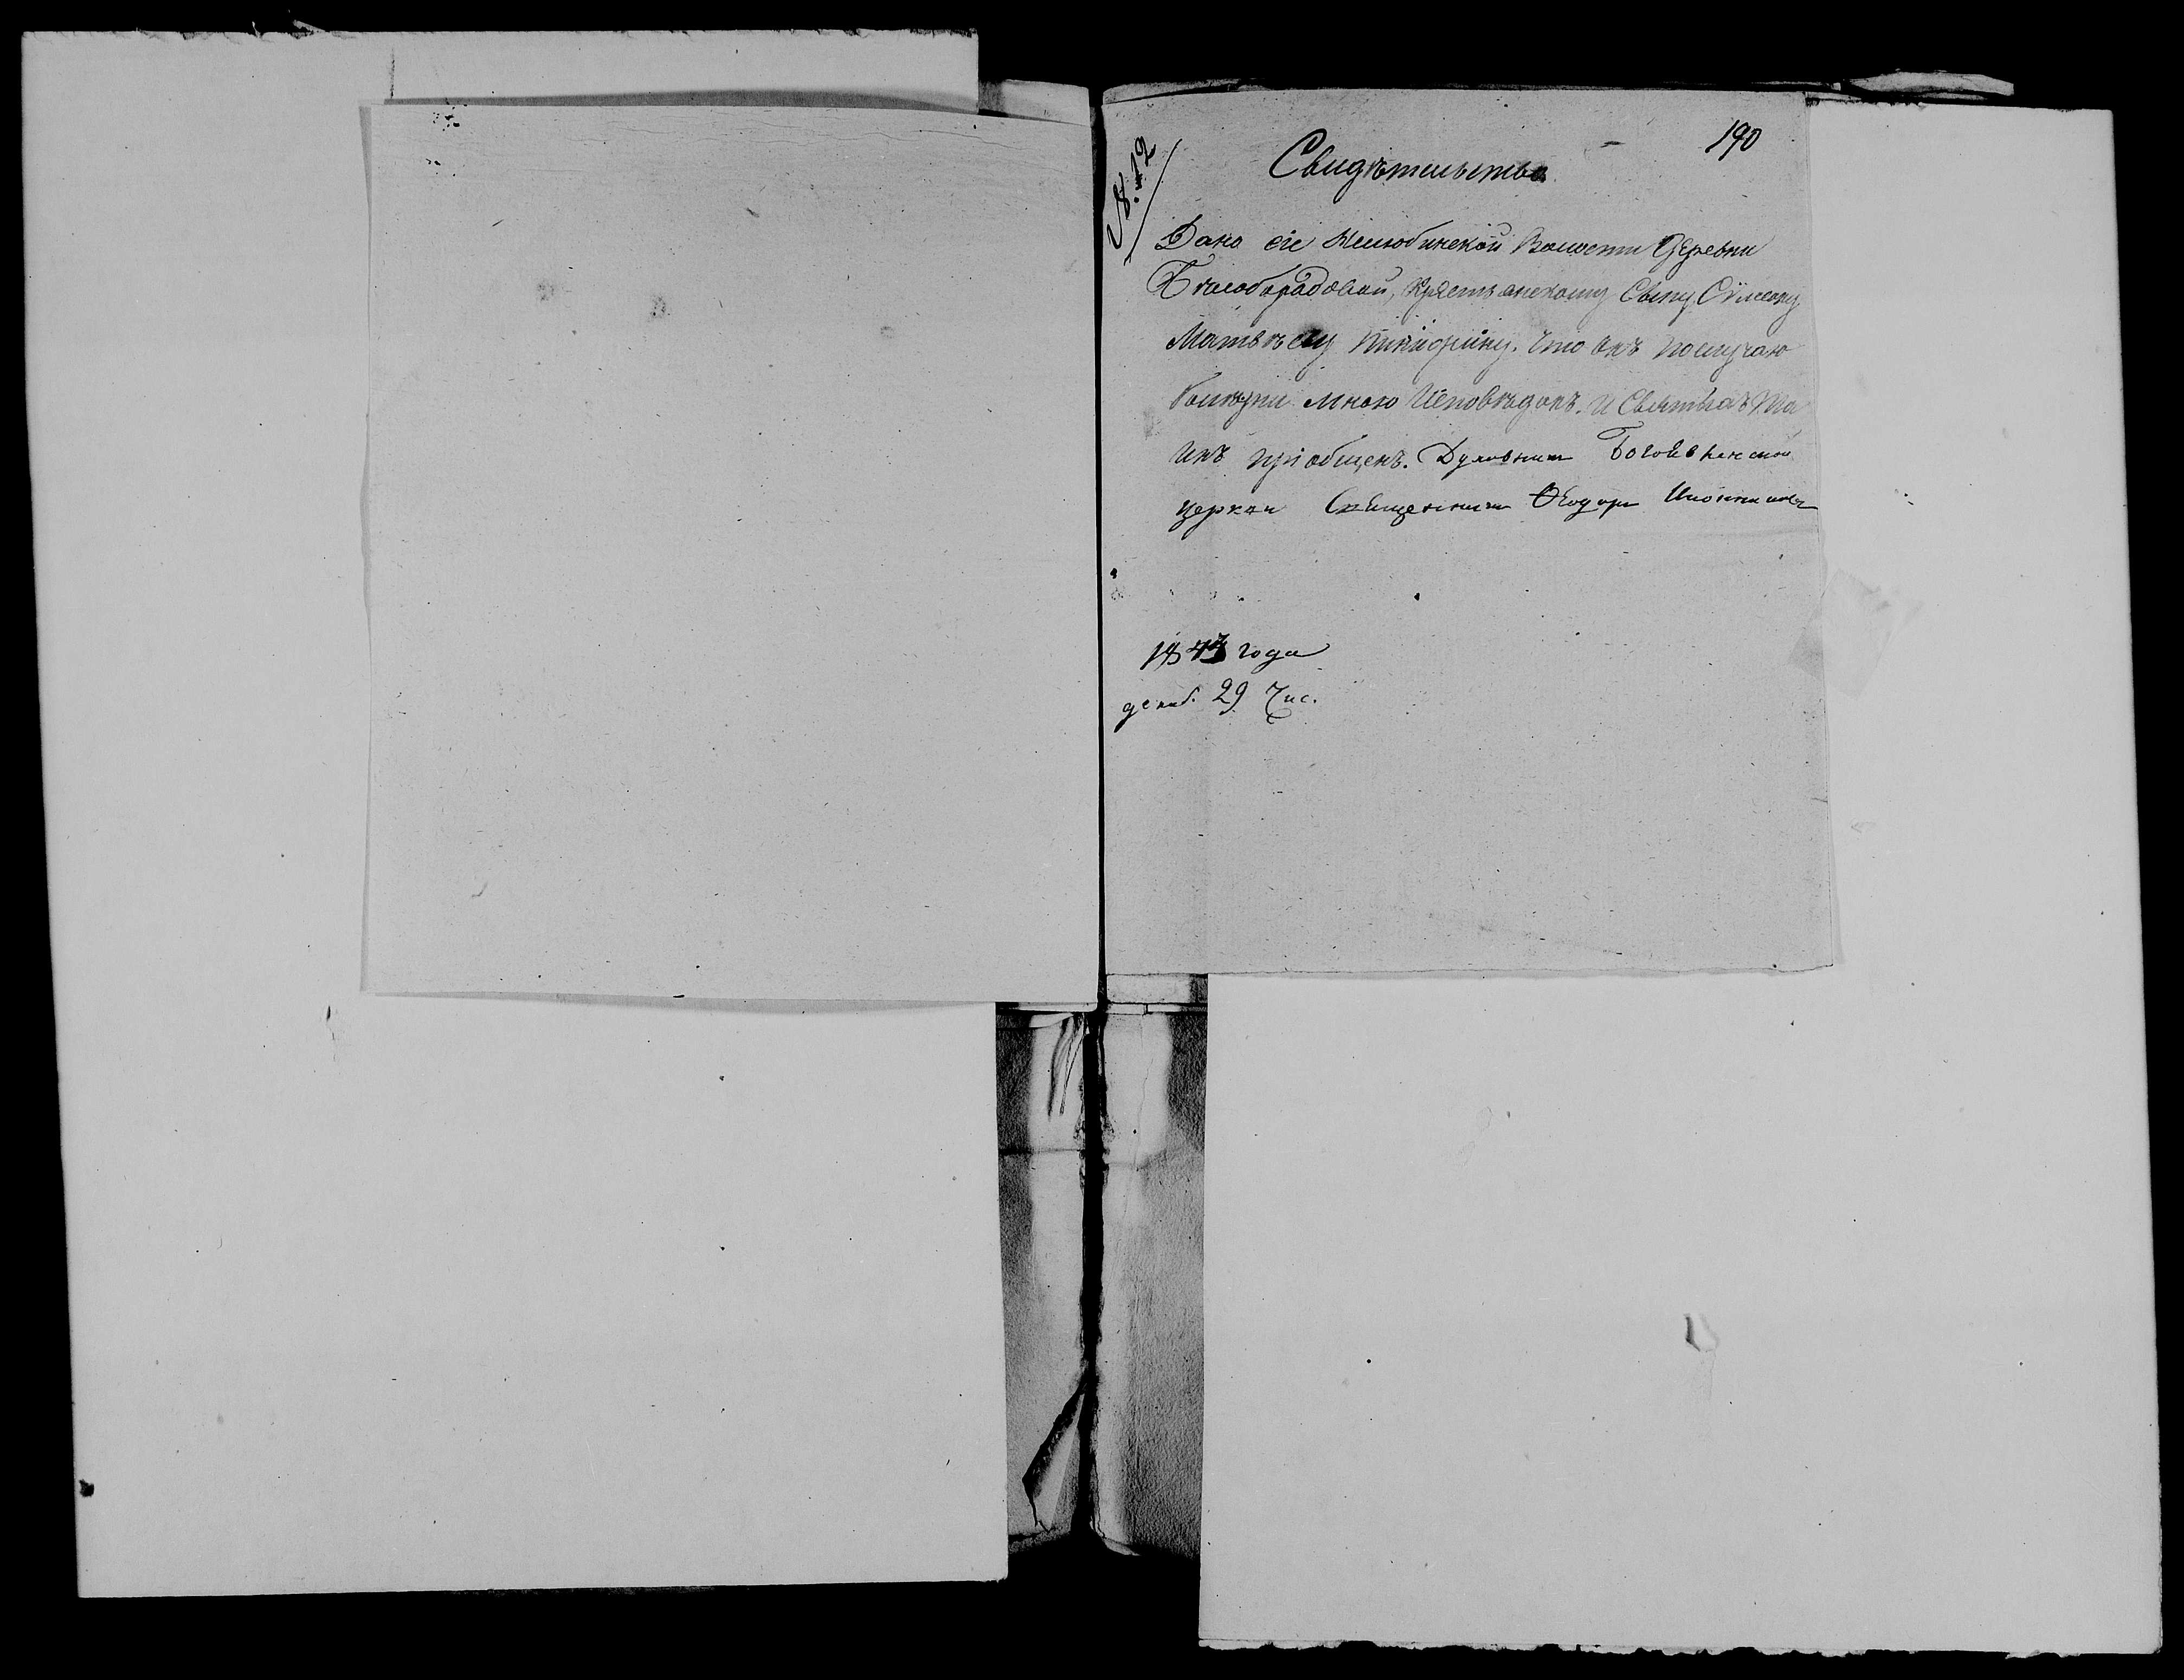 190
№. 12
Свидѣтельство
Дано сіе Нелюбинской Волости Деревни
Бѣлобородовой, Крястьянскому Сыну Сѵмеону
Матвѣеву что онъ по случаю
болѣзни мною Исповѣдонъ. И Святыхъ Та
инъ пріобщенъ. Духовник Богоявленской
церкви Священник Ѳеодор
1843 года
декаб. 29 Чис.